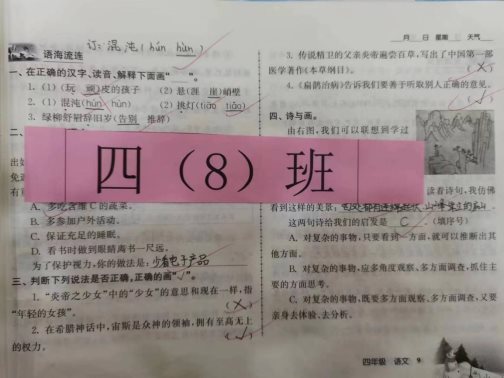 订：混沌（hún hùn）
语海流连
一、在正确的汉字、读音、解释下面画“ ”。
1.（1）（玩 顽）皮的孩子 （2）悬（涯 崖）峭壁
2.（1）混沌（hún hùn） （2）挑灯（tiāo tiǎo）
3. 绿柳舒眉辞旧岁（告别 推辞）
二、
四（8）班
A. 多吃含维C的蔬菜。
B. 多参加户外活动。
C. 保证充足的睡眠。
D. 看书时做到眼睛离书一尺远。
为了保护视力，你的做法是：少看电子产品
三、判断下列说法是否正确，正确的画“√”。
1. “炎帝之少女”中的“少女”的意思和现在一样，指
“年轻的女孩”。
（X）
2. 在希腊神话中，宙斯是众神的领袖，拥有至高无上
的权力。
（√）
月 日 星期 天气
3. 传说精卫的父亲炎帝遍尝百草，写出了中国第一部
医学著作《本草纲目》。
（X）
4. 《扁鹊治病》告诉我们要善于听取别人正确的意见。
（√）
四、诗与画。
由右图，我们可以联想到学过
读着诗句，我仿佛
看到这样的美景：
这两句诗给我们的启发是 C （填序号）
A. 对复杂的事物，只要看到一方面，就可以推断出其
他方面。
B. 对复杂的事物，应多角度观察、多方面调查，抓住主
要的方面思考。
C. 对复杂的事物，既要多方面观察、多方面调查，又要
亲身去体验、去分析。
四年级 语文 9